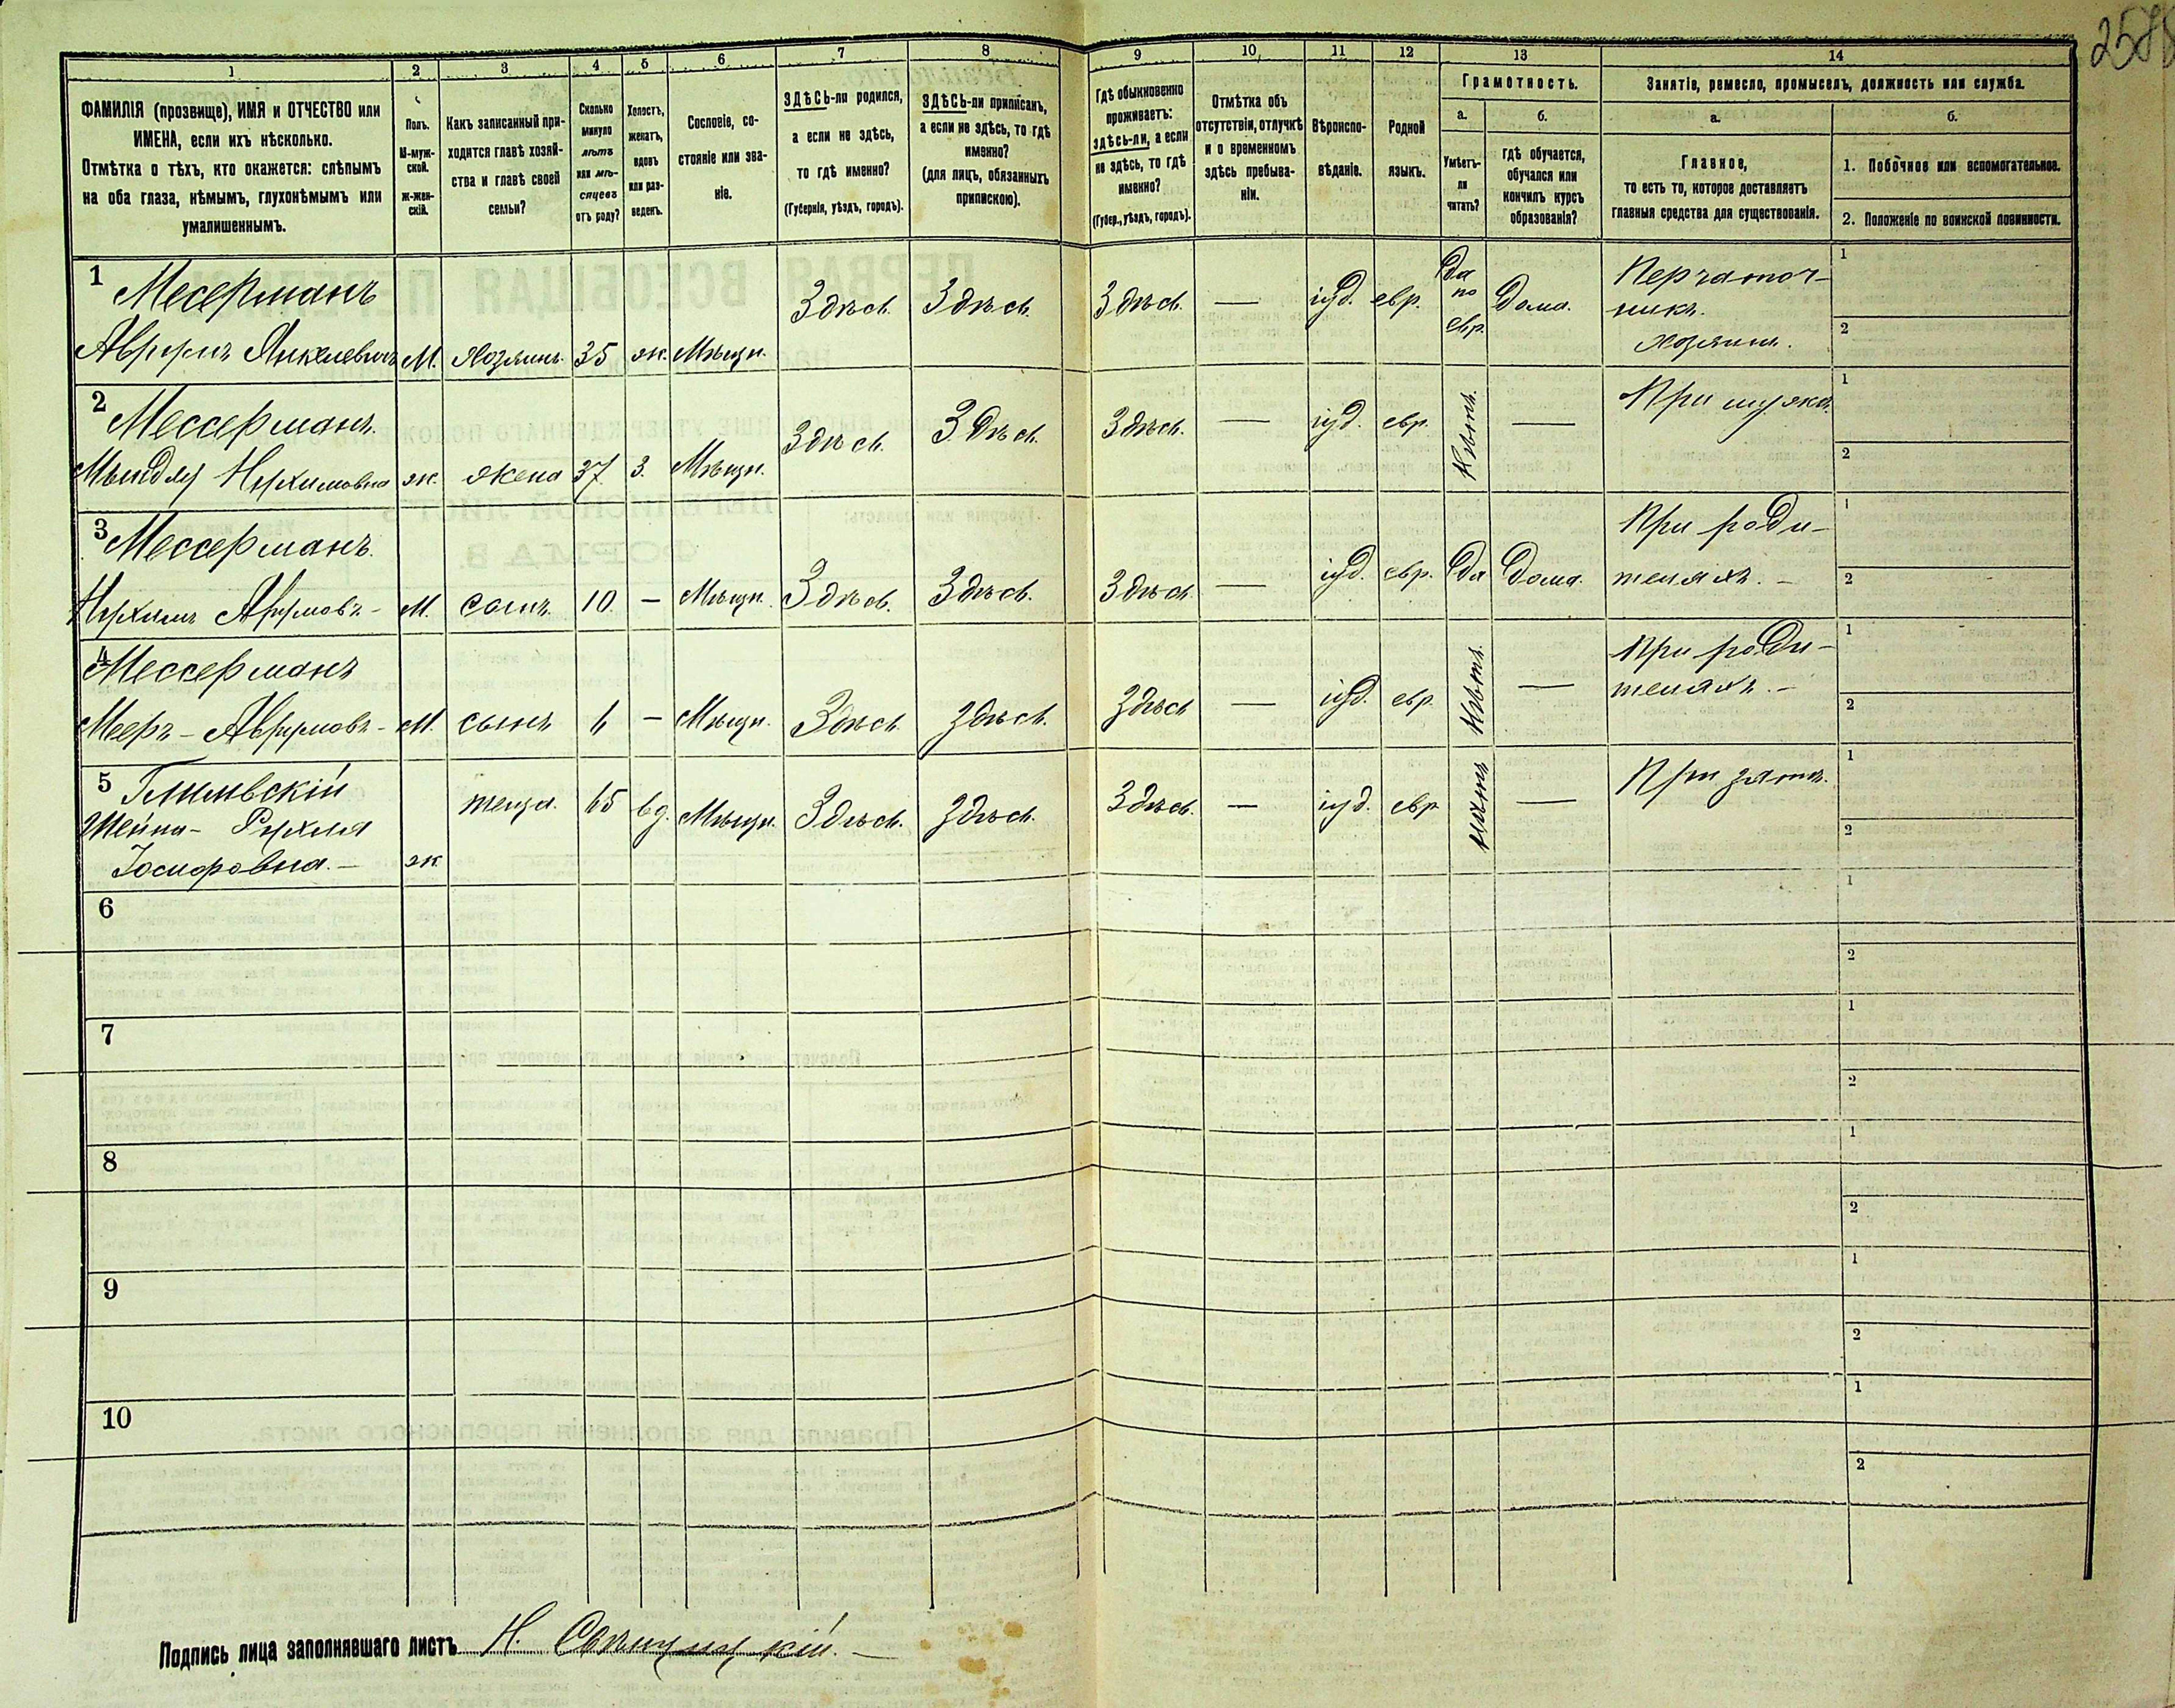 258
1 2 3 4 5 6 7 8 9 10 11 12 13 14
ФАМИЛІЯ (прозвище), ИМЯ и ОТЧЕСТВО или
ИМЕНА, если ихъ нѣсколько.
Отмѣтка о тѣхъ, кто окажется: слѣпымъ
на оба глаза, нѣмымъ, глухонѣмымъ или
умалишеннымъ.
Полъ.
М-муж-
ской.
Ж-жен-
скій.
Какъ записанный при-
ходится главѣ хозяй-
ства и главѣ своей
семьи?
Сколько
минуло
лѣтъ
или мѣ-
сяцевъ
отъ роду?
Холостъ,
женатъ,
вдовъ
или раз-
веденъ.
Сословіе, со-
стояніе или зва-
ніе.
ЗДѢСЬ-ли родился,
а если не здѣсь,
то гдѣ именно?
(Губернія, уѣздъ, городъ).
ЗДѢСЬ-ли приписанъ,
а если не здѣсь, то гдѣ
именно?
(для лицъ, обязанныхъ
припискою).
Гдѣ обыкновенно
проживаетъ:
здѣсь-ли, а если
не здѣсь, то гдѣ
именно?
(Губер., уѣздъ, городъ).
Отмѣтка объ
отсутствіи, отлучкѣ
и о временномъ
здѣсь пребыва-
ніи.
Вѣроиспо-
вѣданіе.
Родной
языкъ.
Грамотность.
а.
Умѣетъ-
ли
читать?
б.
Гдѣ обучается,
обучался или
кончилъ курсъ
образованія?
Занятіе, ремесло, промыселъ, должность или служба.
а.
Главное,
то есть то, которое доставляетъ
главныя средства для существованія.
б.
1. Побочное или вспомогательное.
2. Положеніе по воинской повинности.
1 Месерманъ
Аврумъ Янкелевичъ М. Хозяинъ 35 ж. Мѣщ. Здѣсь. Здѣсь. Здѣсь. — іуд. евр. Да по евр. Дома. Перчаточ-
никъ.
хозяинъ.
1
2
2 Мессерманъ.
Нухимовна ж. жена 37 З. Мѣщ. Здѣсь. Здѣсь. Здѣсь. — іуд. евр. Нѣтъ. — При мужѣ.
1
2
3 Мессерманъ.
Нухимъ Аврумовъ - М. сынъ 10 — Мѣщ. Здѣсь. Здѣсь. Здѣсь — іуд. евр. Да Дома. При роди-
теляхъ. -
1
2
4 Мессерманъ
Мееръ - Аврумовъ - М. сынъ 6 — Мѣщ. Здѣсь. Здѣсь. Здѣсь — іуд. евр. Нѣтъ. — При роди-
теляхъ. -
1
2
5
Шейна - Рухля
Іосифовна. — ж. теща. 65 вд. Мѣщ. Здѣсь. Здѣсь. Здѣсь. — іуд. евр — При зятѣ.
1
2
6
1
2
7
1
2
8
1
2
9
1
2
10
1
2
Подпись лица заполнявшаго листъ Н.